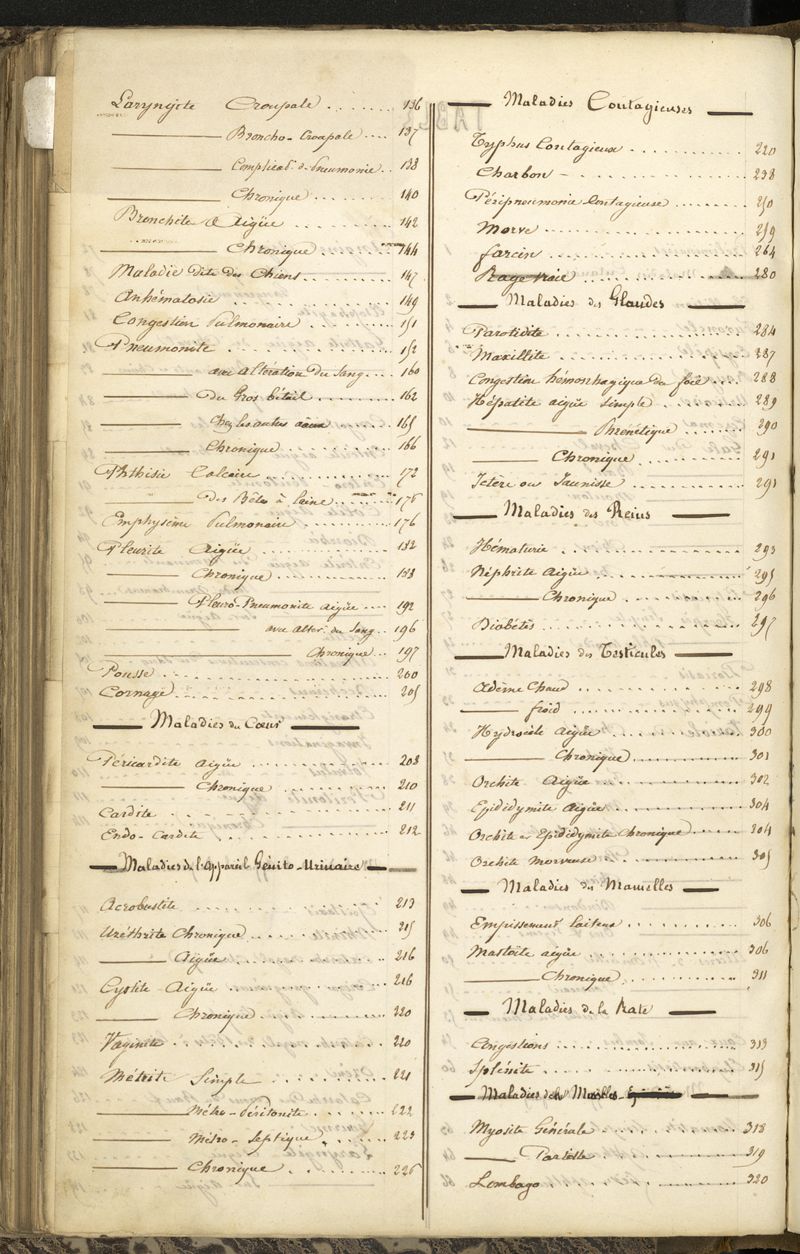 Laryngite Croupale . . . . . . . 136
——— Broncho-Croupale . . . . 137
——— Complicat. de Pneumonie . . 138
——— Chronique . . . . . . . 140
Bronchite Aigüe . . . . . . . . 142
——— Chronique . . . . . . . 144
Maladie dite des Chiens . . . . 147
Anhématosie . . . . . . . . . . 149
Congestion Pulmonaire . . . . . 151
Pneumonite . . . . . . . . . . . 152
——— avec altération du Sang . . . 160
——— Du Gros bétail . . . . . . . 162
——— Chez les autres . . . . . . 165
——— Chronique . . . . . . . . . 166
Phthisie Calcaire . . . . . . . . 172
——— Des Bêtes à laine . . . . . . 175
Emphysème Pulmonaire . . . . . . 176
Pleurite Aigüe . . . . . . . . . 182
——— Chronique . . . . . . . . . 188
——— Pleuro-Pneumonite aigüe . . . . 192
——— avec alter. du Sang . . 196
——— Chronique . . 197
Pousse . . . . . . . . . . . . . 200
Cornage . . . . . . . . . . . . . 205
— Maladies du Cœur —
Péricardite aigüe . . . . . . . . 208
——— Chronique . . . . . . . . . 210
Cardite . . . . . . . . . . . . . 211
Endo-Cardite . . . . . . . . . . 212
— Maladies de l'Appareil Génito-Urinaire —
Acrobustite . . . . . . . . . . . 213
Uréthrite Chronique . . . . . . . 215
——— Aigüe . . . . . . . . . . . 216
Cystite Aigüe . . . . . . . . . . 216
——— Chronique . . . . . . . . . 220
Vaginite . . . . . . . . . . . . 220
Métrite Simple . . . . . . . . . 221
——— Métro-Péritonite . . . . . . 222
——— Métro-Septique . . . . . . . 223
——— Chronique . . . . . . . . . 226
— Maladies Contagieuses —
Typhus Contagieux . . . . . . . . 220
Charbon — . . . . . . . . . . . . 238
Péripneumonie Contagieuse . . . . 250
Morve . . . . . . . . . . . . . . 259
farcin . . . . . . . . . . . . . 264
Rage vraie . . . . . . . . . . . 280
— Maladies des Glandes —
Parotidite . . . . . . . . . . . 284
Maxillite . . . . . . . . . . . . 287
Congestion hémorrhagique du foie . . . . 288
Hépatite aigüe simple . . . . . . 289
——— Phrénétique . . . . . . . . 290
——— Chronique . . . . . . . . . 291
Ictère ou Jaunisse . . . . . . . 291
— Maladies des Reins —
Hématurie . . . . . . . . . . . . 293
Néphrite Aigüe . . . . . . . . . 295
——— Chronique . . . . . . . . . 296
Diabétés . . . . . . . . . . . . 297
— Maladies des Testicules —
Œdème Chaud . . . . . . . . . . . 298
——— froid . . . . . . . . . . . 299
Hydrocèle Aigüe . . . . . . . . . 300
——— Chronique . . . . . . . . . 301
Orchite Aigüe . . . . . . . . . . 302
Epididymite Aigüe . . . . . . . . 304
Orchite et Epididymite Chronique . . . . 304
Orchite Morveuse . . . . . . . . 305
— Maladies des Mamelles —
Empissement laiteux . . . . . . . 306
Mastoite aigüe . . . . . . . . . 306
——— Chronique . . . . . . . . . 311
— Maladies de la Rate —
Congestions . . . . . . . . . . . 313
Splénite . . . . . . . . . . . . 315
— Maladies des Muscles —
Myosite Générale . . . . . . . . 318
——— Partielle . . . . . . . . . 319
Lombago . . . . . . . . . . . . . 320